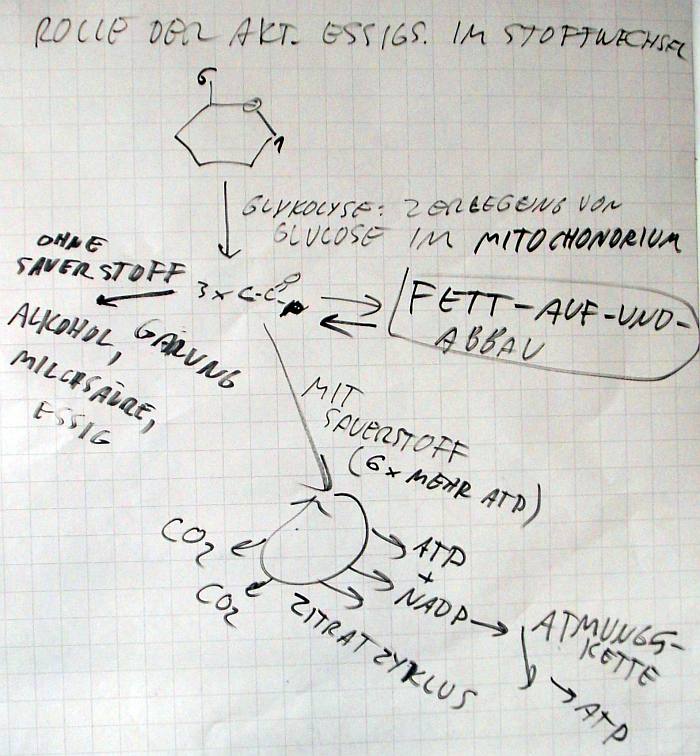 ROLLE DER AKT. ESSIGS. IM STOFTWECHSEL
6
O
1
GLYKOLYSE: ZERLEGUNG VON
GLUCOSE IM MITOCHONDRIUM
OHNE
SAUERSTOFF
3x C-C
O
FETT-AUF-UND-
ABBAU
ALKOHOL, GÄRUNG
MILCHSÄURE,
ESSIG
MIT
SAUERSTOFF
(6x MEHR ATP)
CO2
CO2
ATP
+
NADP
ZITRATZYKLUS
ATMUNGS-
KETTE
ATP